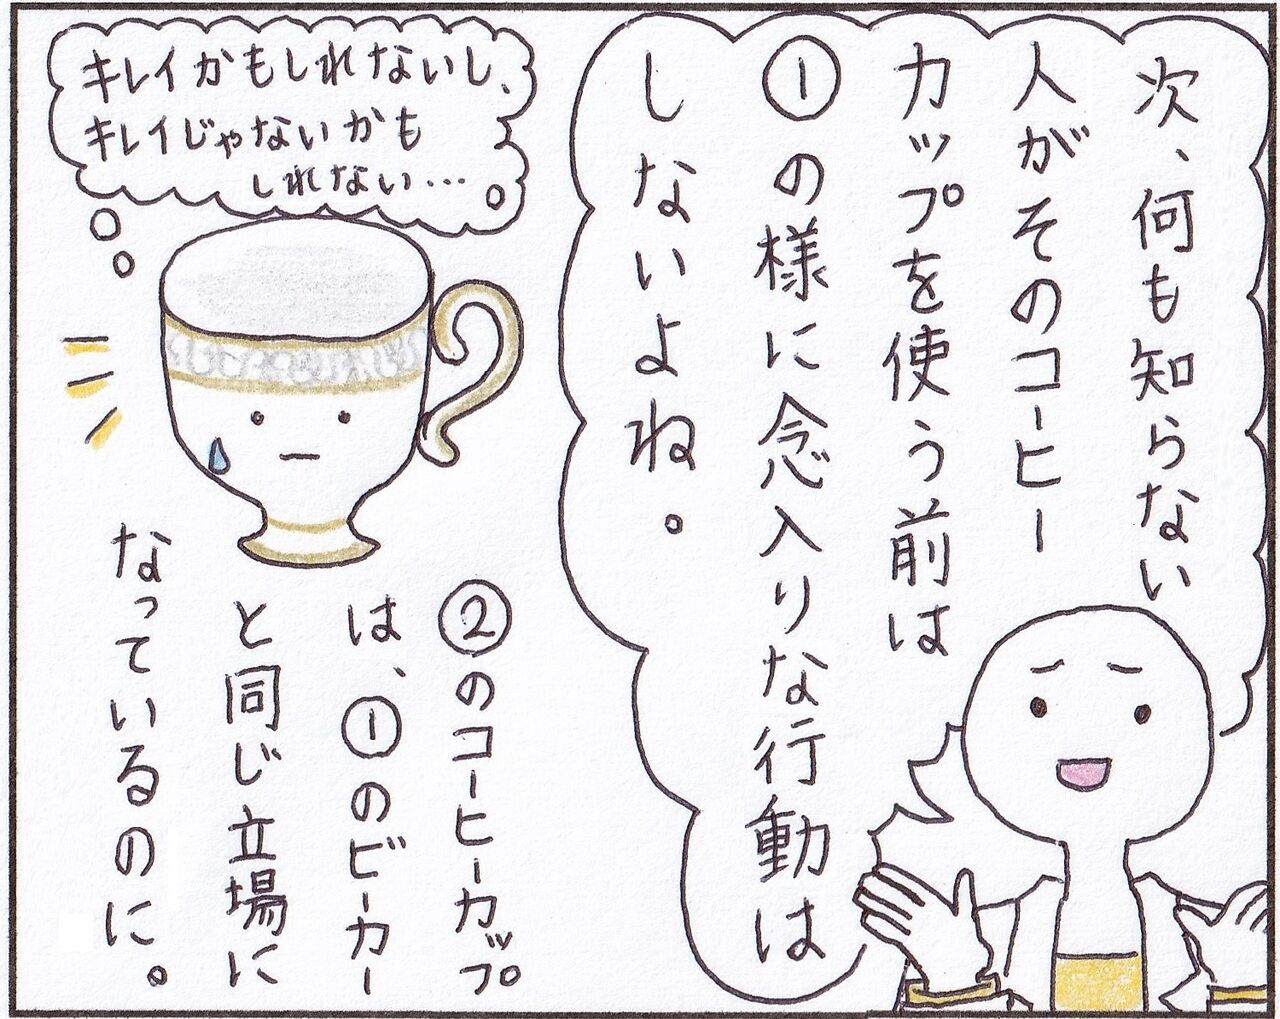 次、何も知らない
人がそのコーヒー
カップを使う前は
①の様に念入りな行動は
しないよね。
キレイかもしれないし、
キレイじゃないかも
しれない…
②のコーヒーカップ
は、①のビーカー
と同じ立場に
なっているのに。